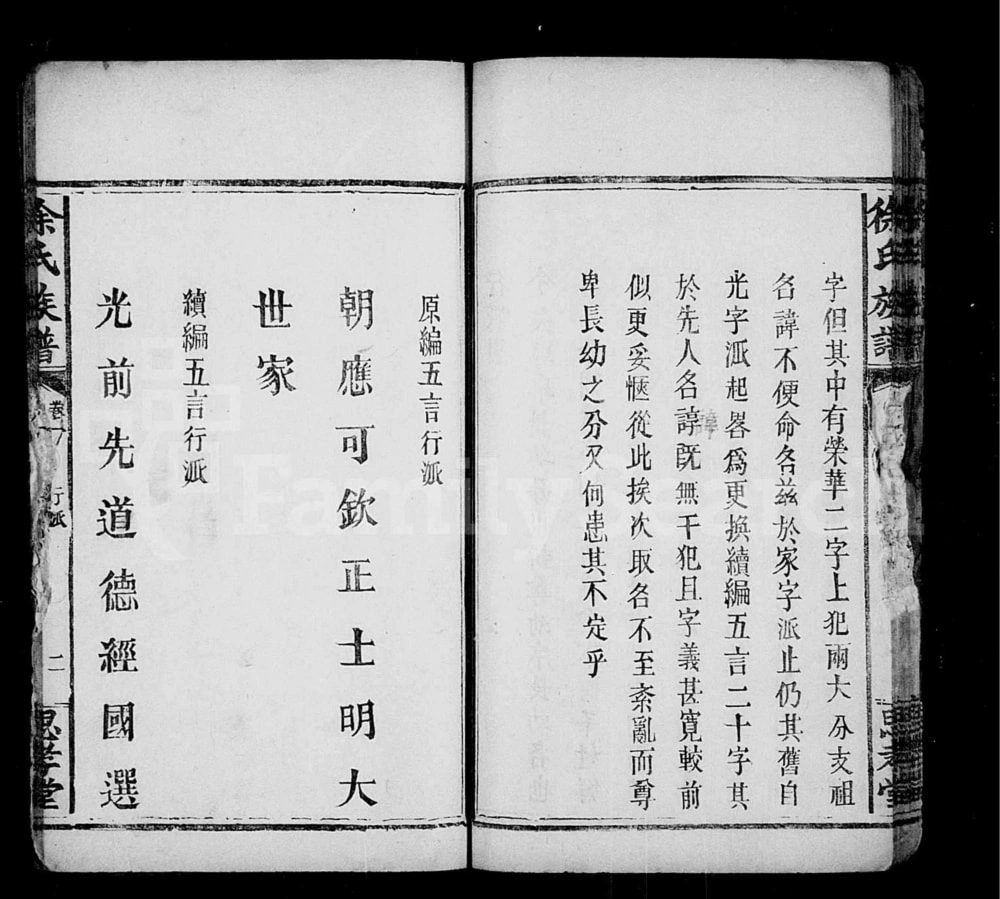 徐氏族譜
思孝堂
字但其中有榮華二字上犯兩大分支祖
名諱不便命名茲於家字派止仍其舊自
光字派起畧爲更換續編五言二十字其
於先人名諱既無干犯且字義甚寬較前
似更妥愜從此挨次取名不至紊亂而尊
卑長幼之分又何患其不定乎
原編五言行派
朝應可欽正士明大
世家
續編五言行派
光前先道德經國選
徐氏族譜
卷一
行派
二
思孝堂